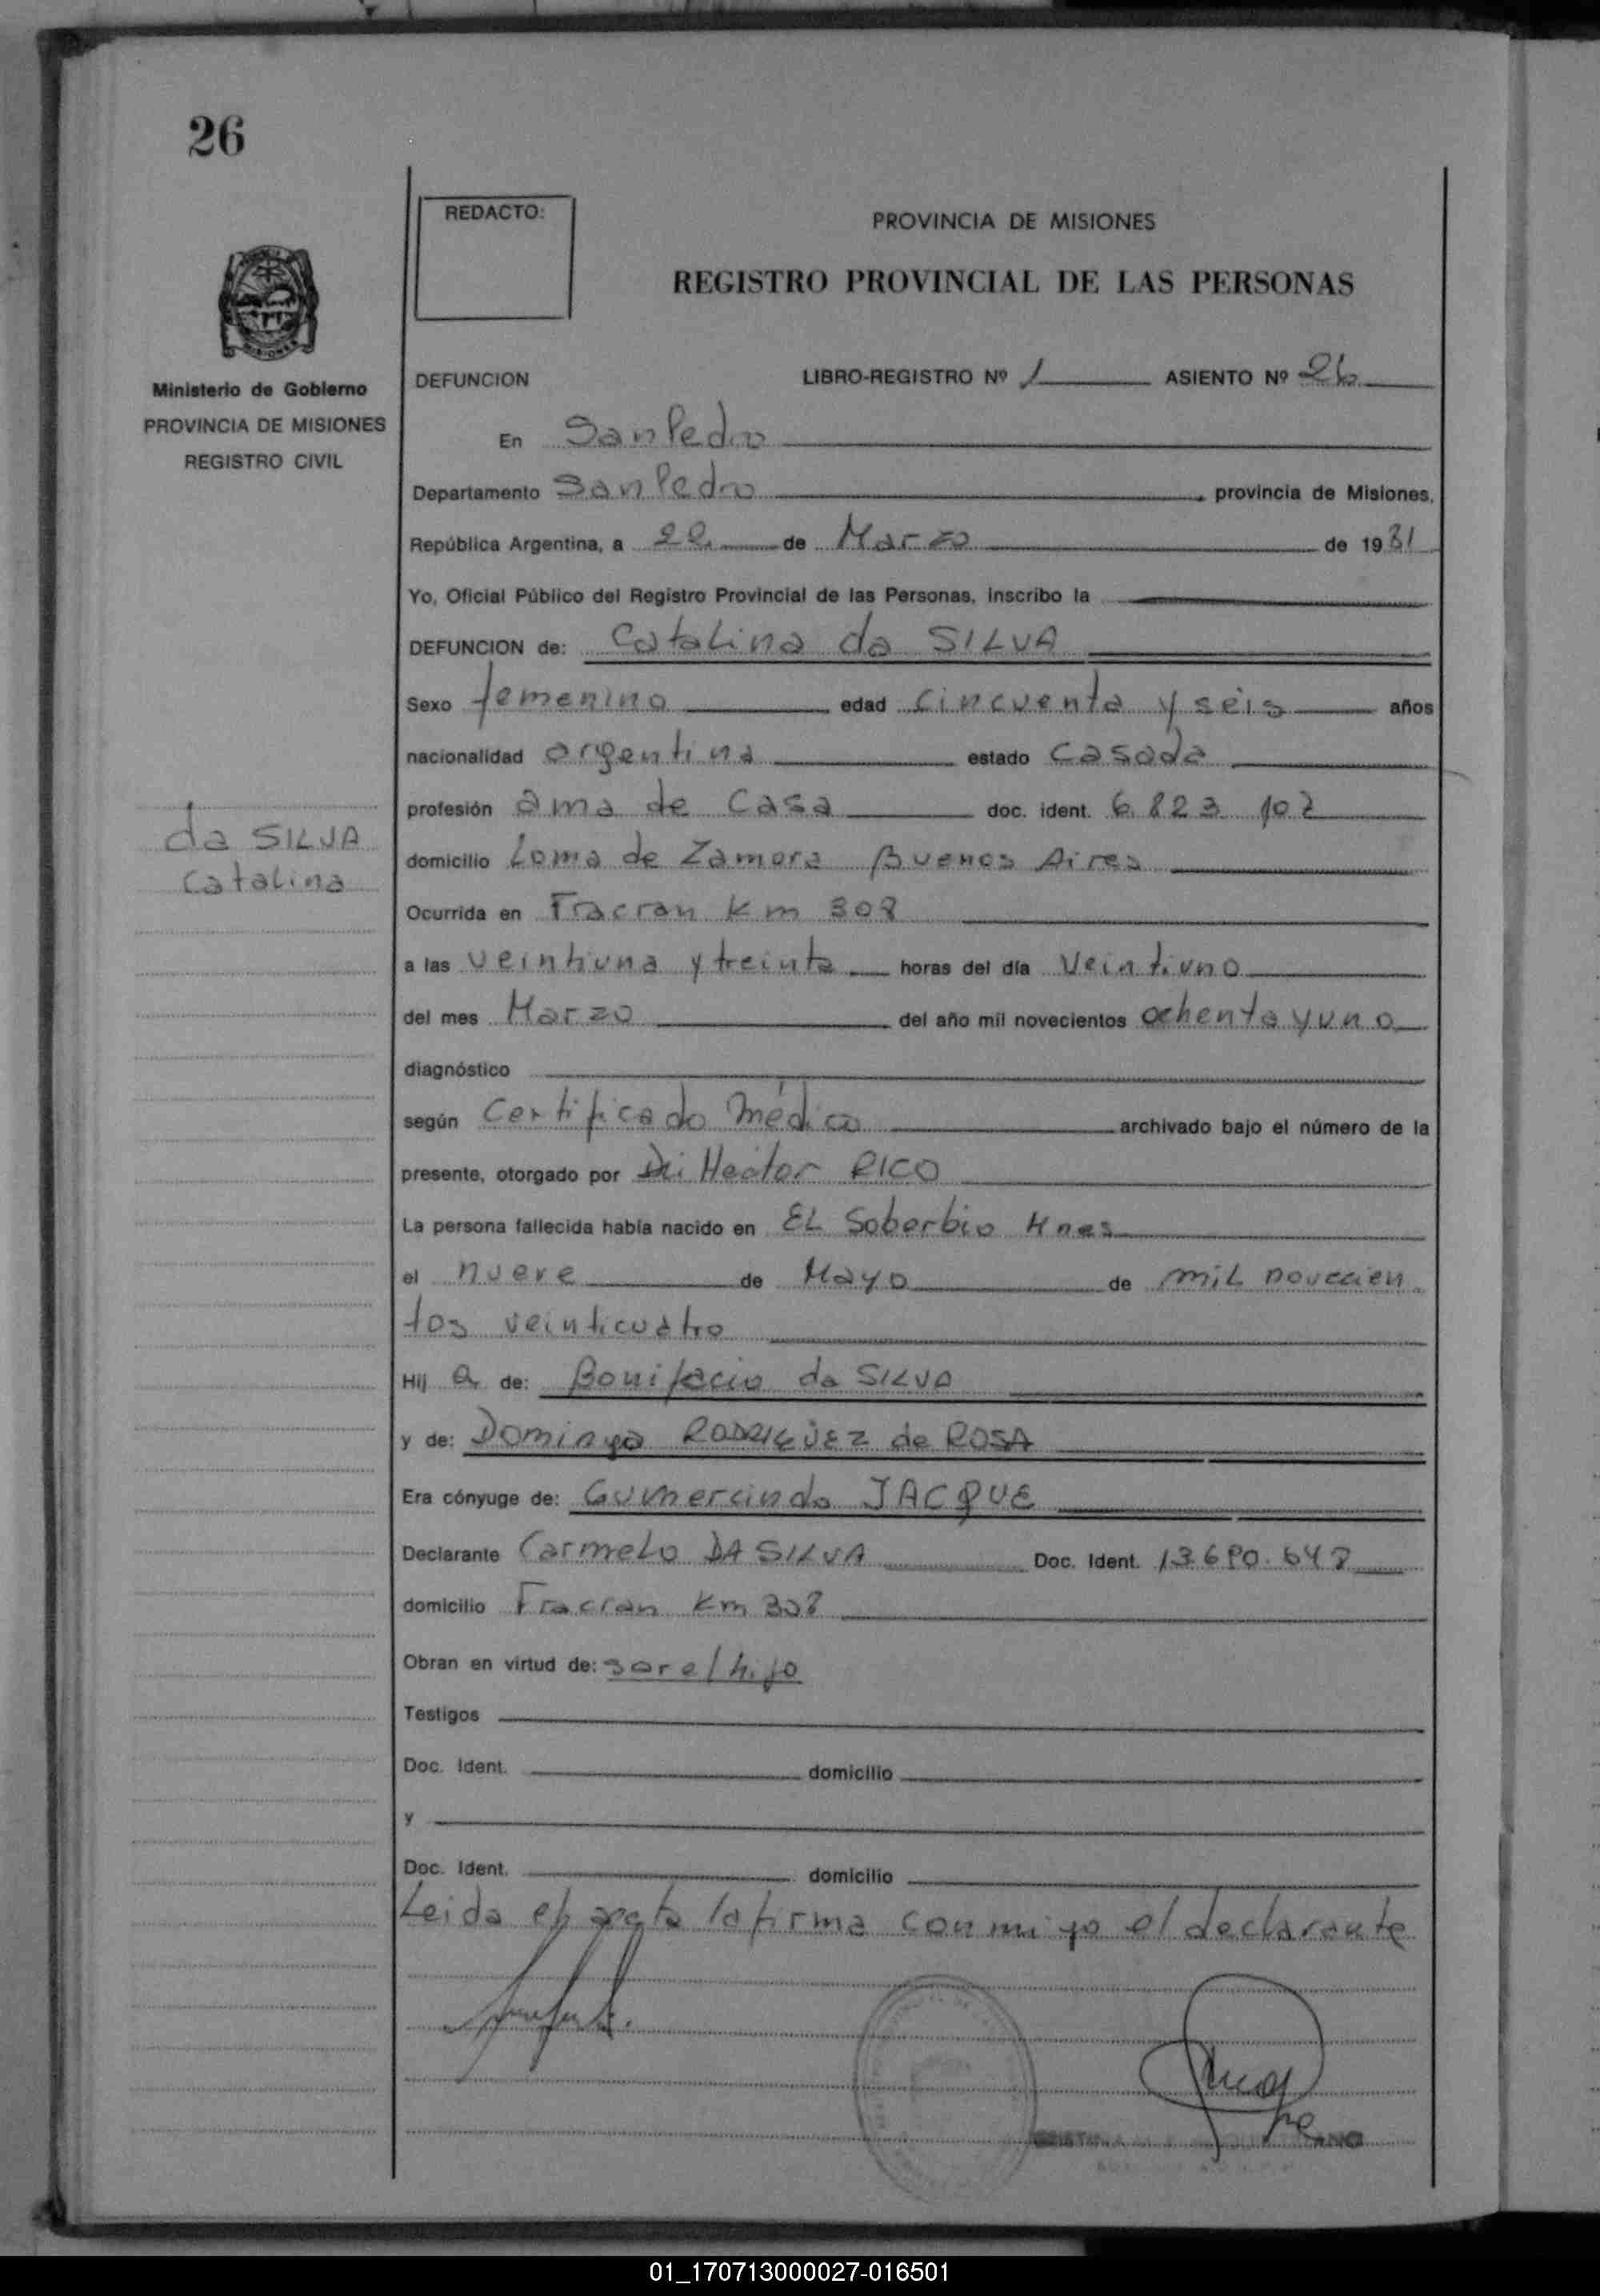 26
REDACTO:
PROVINCIA DE MISIONES
REGISTRO PROVINCIAL DE LAS PERSONAS
Ministerio de Gobierno
PROVINCIA DE MISIONES
REGISTRO CIVIL
DEFUNCION LIBRO-REGISTRO Nº 1 ASIENTO Nº 26
En San Pedro
Departamento San Pedro, provincia de Misiones,
República Argentina, a 22 de Marzo de 1981
Yo, Oficial Público del Registro Provincial de las Personas, inscribo la
DEFUNCION de: Catalina da SILVA
Sexo femenino edad cincuenta y séis años
nacionalidad argentina estado casada
profesión ama de casa doc. ident. 6.823.107
da SILVA
Catalina
domicilio Loma de Zamora Buenos Aires
Ocurrida en Fracran Km 308
a las veintiuna y treinta horas del día Veintiuno
del mes Marzo del año mil novecientos ochenta y uno
diagnóstico
según Certificado Médico archivado bajo el número de la
presente, otorgado por Héctor RICO
La persona fallecida había nacido en EL Soberbio Mnes
el nueve de Mayo de mil novecien
tos veinticuatro
Hij a de: Bonifacio da SILVA
y de: Dominga RODRIGUEZ de ROSA
Era cónyuge de: Gumercindo JACQUE
Declarante Carmelo DA SILVA Doc. Ident. 13.690.648
domicilio Fracran Km 308
Obran en virtud de: ser el hijo
Testigos
Doc. Ident. domicilio
y
Doc. Ident. domicilio
Leida el acta la firma conmigo el declarante
01_170713000027-016501